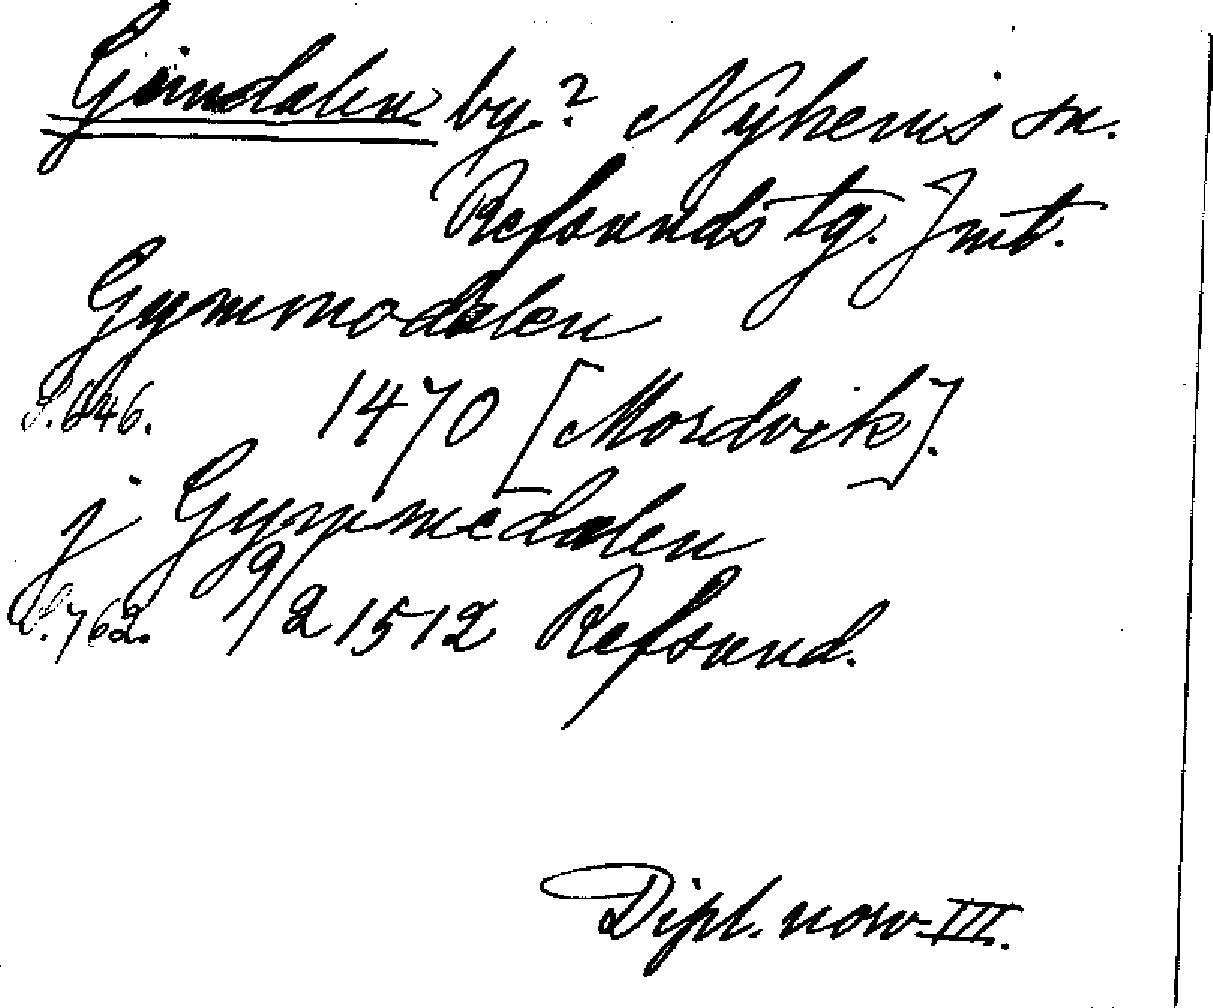 Gimdalen by.? Nyhems sn.
Refsunds tg. Jmt.
Gymmodalen
S. 646. 1470 [Mordvik].
j Gymmedalen
S. 762. 9/2 1512 Refsund.
Dipl. norv. III.